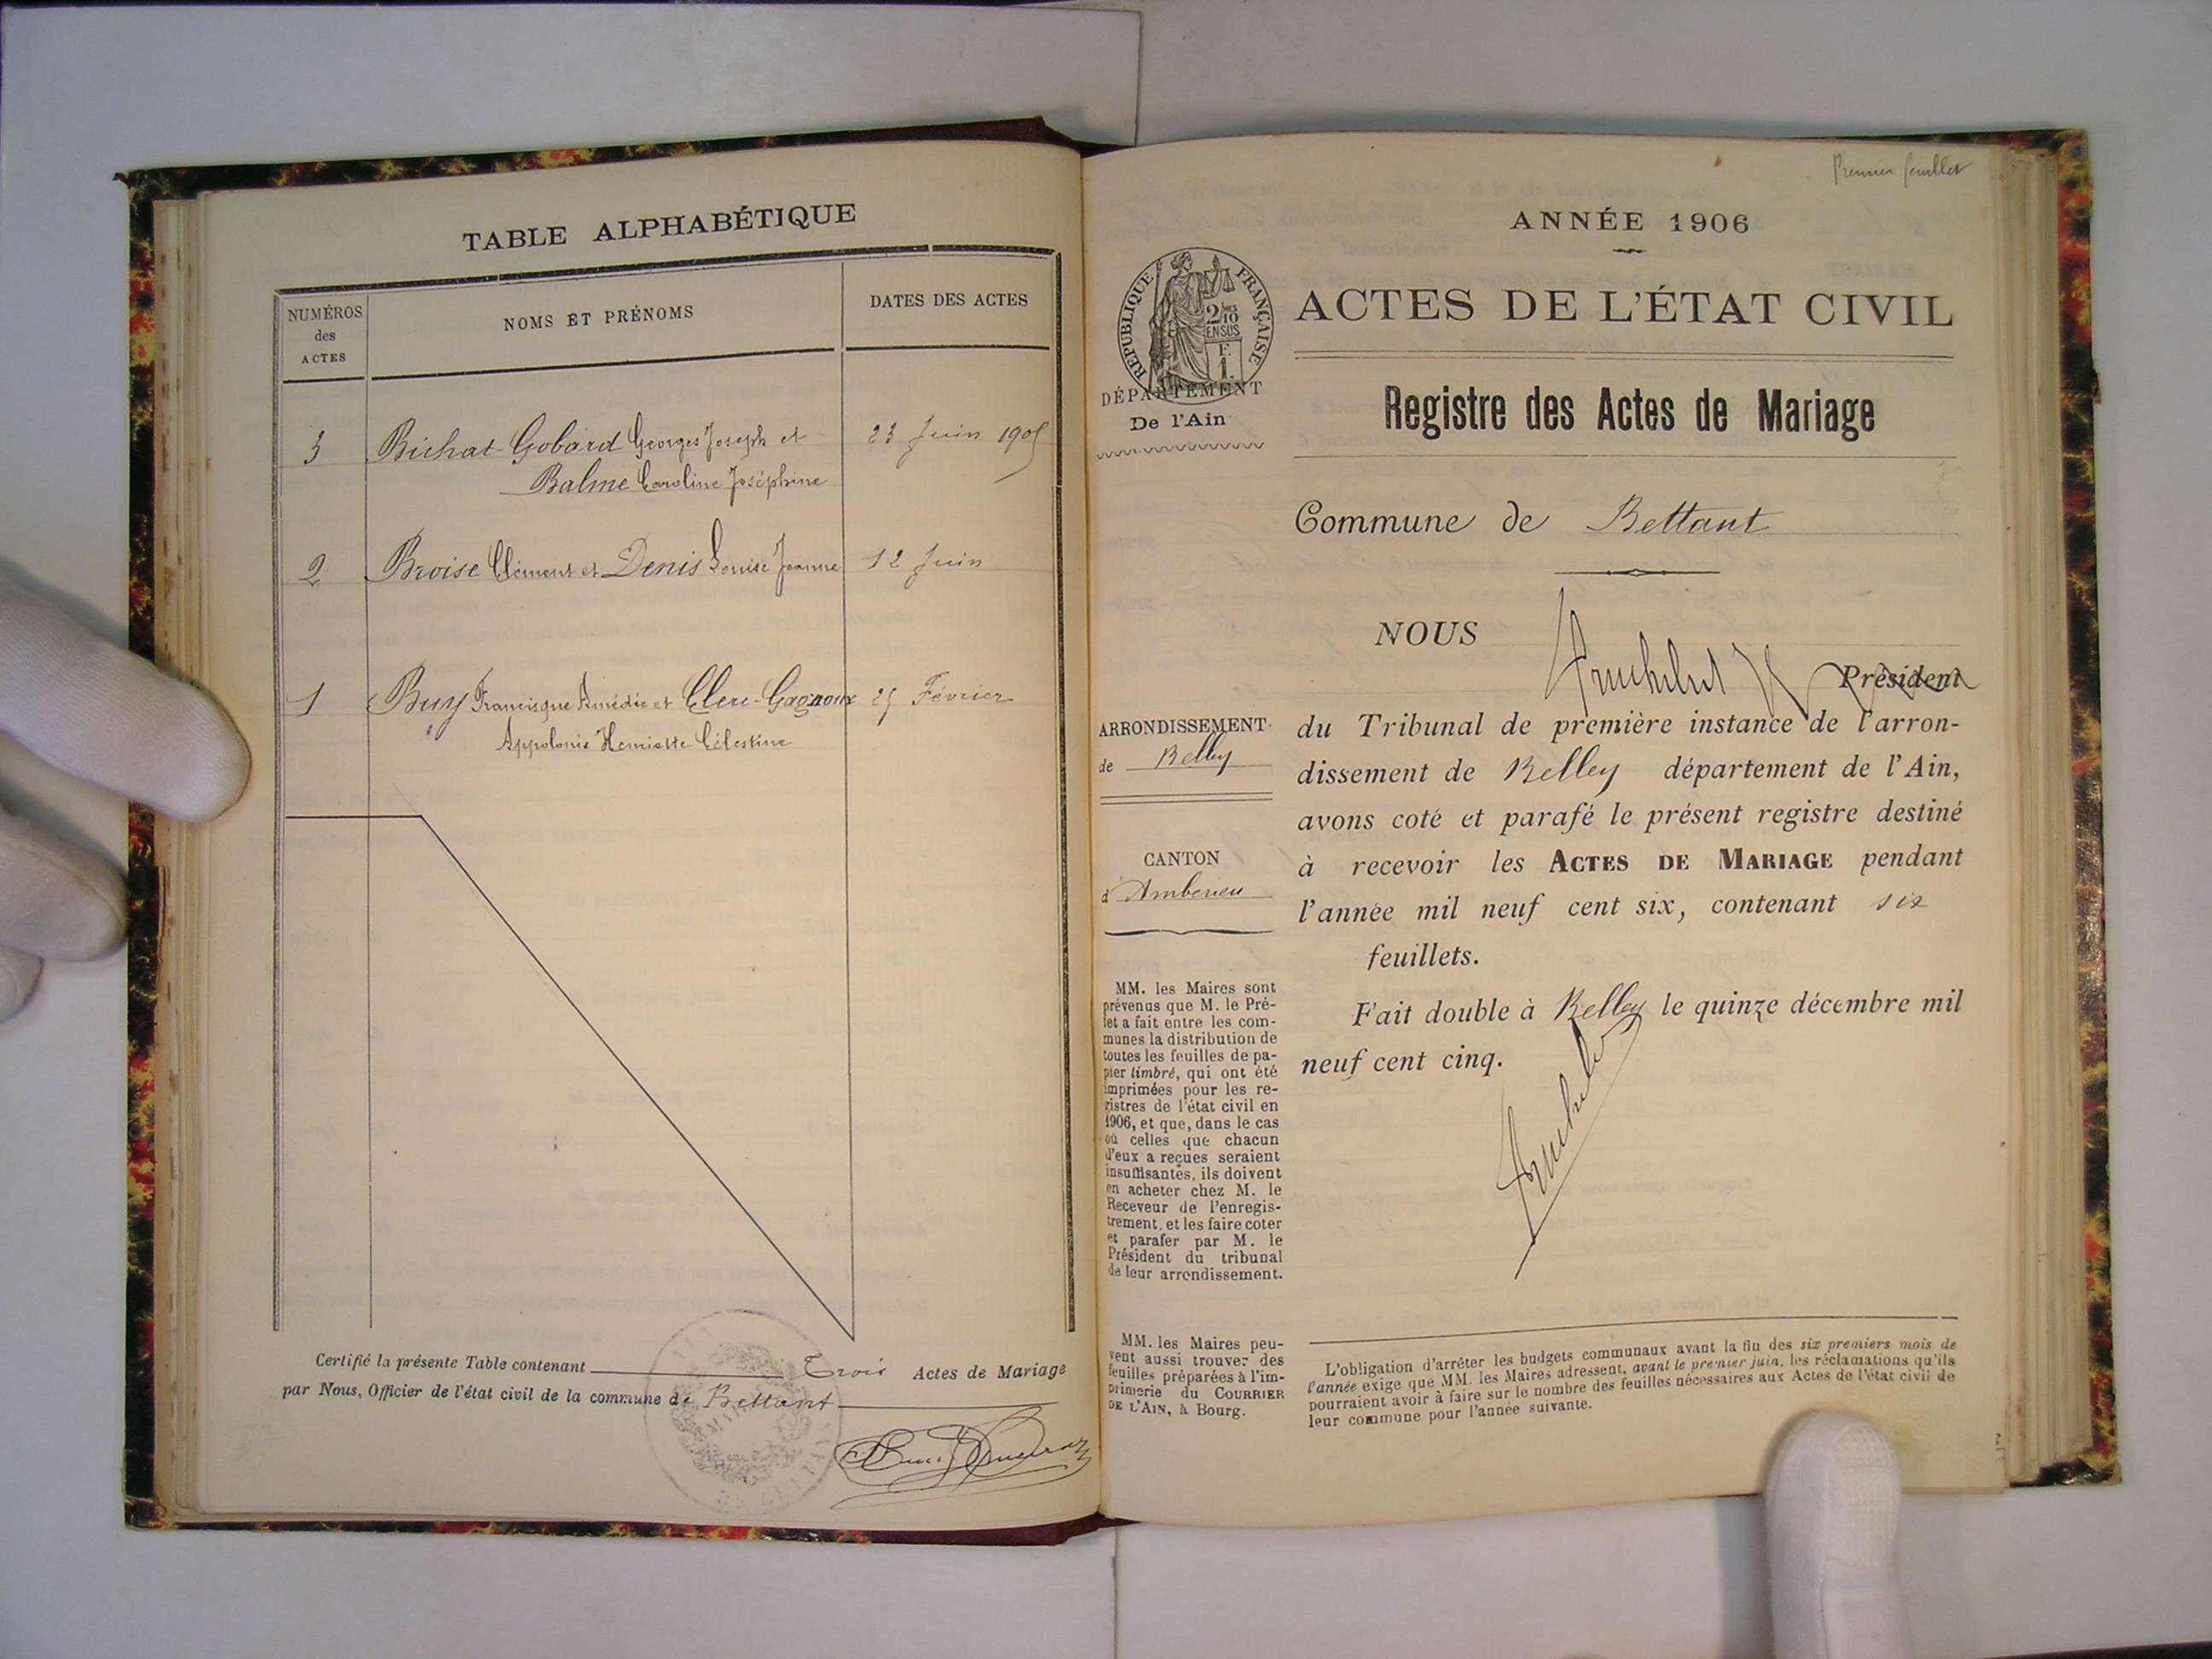 TABLE ALPHABÉTIQUE
NUMÉROS
des
ACTES
NOMS ET PRÉNOMS
DATES DES ACTES
3 Bichat-Gobard Georges Joseph et 23 Juin 1905
Balme Caroline Joséphine
2 Broise Clément et Denis Louise Jeanne 12 Juin
1 Buy Francisque Amédée et Clerc-Gagnoux 25 Février
Appolonie Henriette Célestine
Certifié la présente Table contenant Trois Actes de Mariage
par Nous, Officier de l'état civil de la commune de Bettant
Premier feuillet
ANNÉE 1906
RÉPUBLIQUE FRANÇAISE
2/10
EN SUS
F.
1.
DÉPARTEMENT
De l'Ain
ACTES DE L'ÉTAT CIVIL
Registre des Actes de Mariage
Commune de Bettant
NOUS
Président
du Tribunal de première instance de l'arron-
dissement de Belley département de l'Ain,
avons coté et parafé le présent registre destiné
à recevoir les ACTES DE MARIAGE pendant
l'année mil neuf cent six, contenant six
feuillets.
Fait double à Belley le quinze décembre mil
neuf cent cinq.
ARRONDISSEMENT
de Belley
CANTON
d'Ambérieu
MM. les Maires sont
prévenus que M. le Pré-
fet a fait entre les com-
munes la distribution de
toutes les feuilles de pa-
pier timbré, qui ont été
imprimées pour les re-
gistres de l'état civil en
1906, et que, dans le cas
où celles que chacun
d'eux a reçues seraient
insuffisantes, ils doivent
en acheter chez M. le
Receveur de l'enregis-
trement, et les faire coter
et parafer par M. le
Président du tribunal
de leur arrondissement.
MM. les Maires peu-
vent aussi trouver des
feuilles préparées à l'im-
primerie du COURRIER
DE L'AIN, à Bourg.
L'obligation d'arrêter les budgets communaux avant la fin des six premiers mois de
l'année exige que MM. les Maires adressent, avant le premier juin, les réclamations qu'ils
pourraient avoir à faire sur le nombre des feuilles nécessaires aux Actes de l'état civil de
leur commune pour l'année suivante.